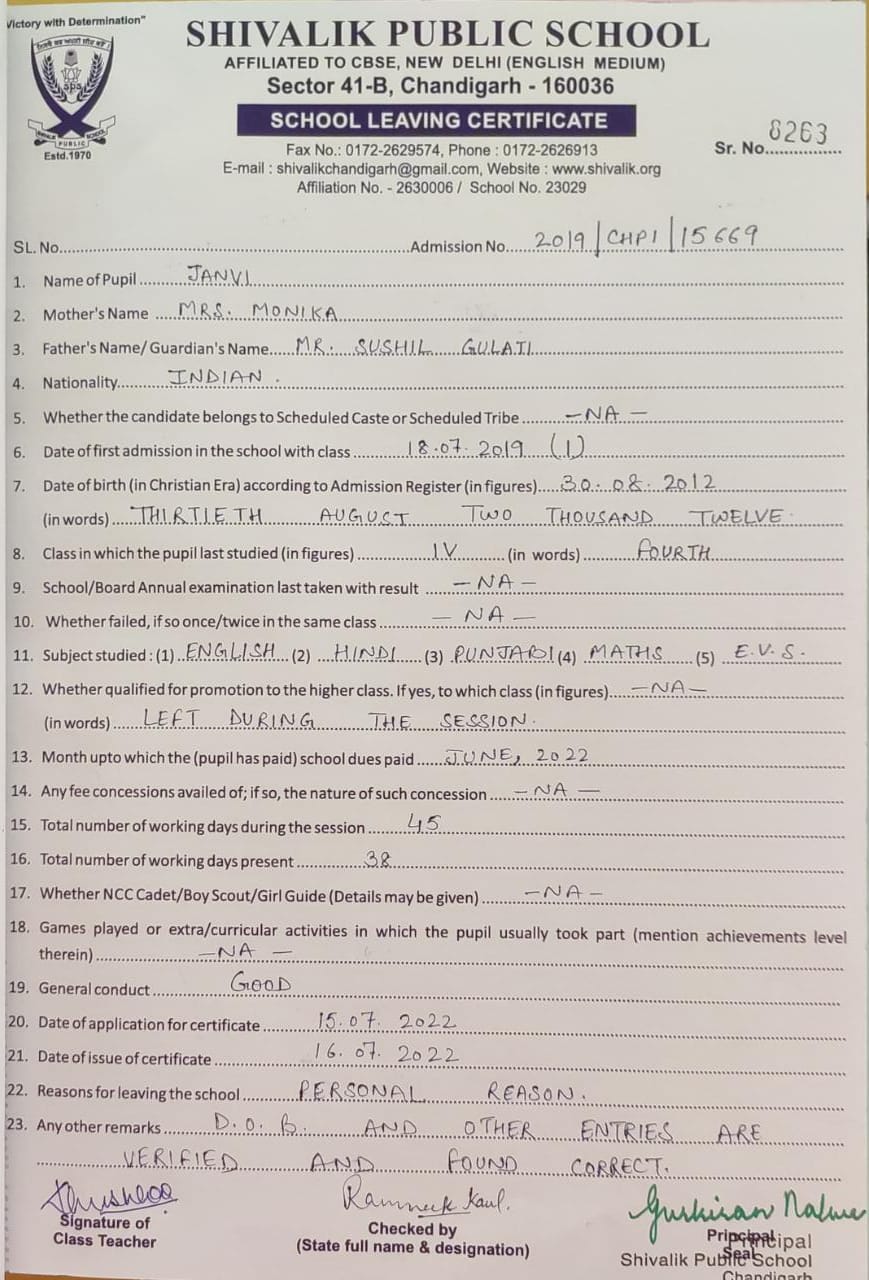 Victory with Determination"
SHIVALIK PUBLIC SCHOOL
AFFILIATED TO CBSE, NEW DELHI (ENGLISH MEDIUM)
Sector 41-B, Chandigarh - 160036
SCHOOL LEAVING CERTIFICATE
sps
SHIVALIK PUBLIC SCHOOL
Estd.1970
Fax No.: 0172-2629574, Phone : 0172-2626913
Sr. No. 8263
E-mail : shivalikchandigarh@gmail.com, Website : www.shivalik.org
Affiliation No. - 2630006 / School No. 23029
SL. No. Admission No. 2019/CHP1/15669
1. Name of Pupil JANVI
2. Mother's Name MRS. MONIKA
3. Father's Name/ Guardian's Name MR. SUSHIL GULATI
4. Nationality INDIAN.
5. Whether the candidate belongs to Scheduled Caste or Scheduled Tribe -NA-
6. Date of first admission in the school with class 18.07.2019 (I)
7. Date of birth (in Christian Era) according to Admission Register (in figures) 30.08.2012
(in words) THIRTIETH AUGUST TWO THOUSAND TWELVE.
8. Class in which the pupil last studied (in figures) IV (in words) FOURTH
9. School/Board Annual examination last taken with result -NA-
10. Whether failed, if so once/twice in the same class -NA-
11. Subject studied : (1) ENGLISH (2) HINDI (3) PUNJABI (4) MATHS (5) E.V.S.
12. Whether qualified for promotion to the higher class. If yes, to which class (in figures) -NA-
(in words) LEFT DURING THE SESSION.
13. Month upto which the (pupil has paid) school dues paid JUNE, 2022
14. Any fee concessions availed of; if so, the nature of such concession -NA-
15. Total number of working days during the session 45
16. Total number of working days present 38
17. Whether NCC Cadet/Boy Scout/Girl Guide (Details may be given) -NA-
18. Games played or extra/curricular activities in which the pupil usually took part (mention achievements level
therein) -NA-
19. General conduct GOOD
20. Date of application for certificate 15.07.2022
21. Date of issue of certificate 16.07.2022
22. Reasons for leaving the school PERSONAL REASON.
23. Any other remarks D.O.B. AND OTHER ENTRIES ARE
VERIFIED AND FOUND CORRECT.
Ramneek Kaul.
Signature of
Class Teacher
Checked by
(State full name & designation)
Principal
Seal
Principal
Shivalik Public School
Chandigarh